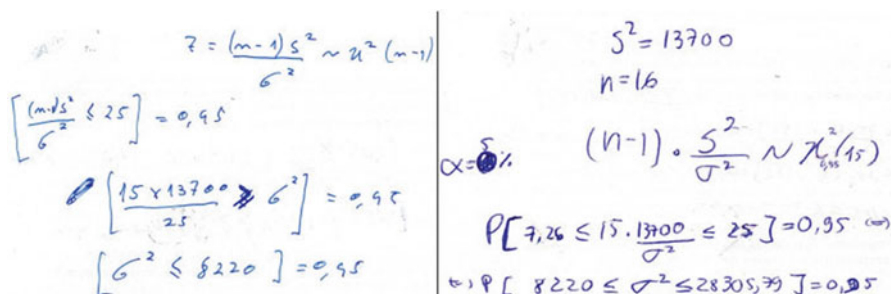 Z = (n-1) s² / σ² ~ x² (n-1)
[(n-1)s² / σ² ≤ 25] = 0,95
[15 x 13700 / 25 ≥ σ²] = 0,95
[σ² ≤ 8220] = 0,95
S² = 13700
n = 16
α = 5%
(n-1) · S² / σ² ~ χ²0,95(15)
P[7,26 ≤ 15 · 13700 / σ² ≤ 25] = 0,95 (=)
(=) P[8220 ≤ σ² ≤ 28305,79] = 0,95